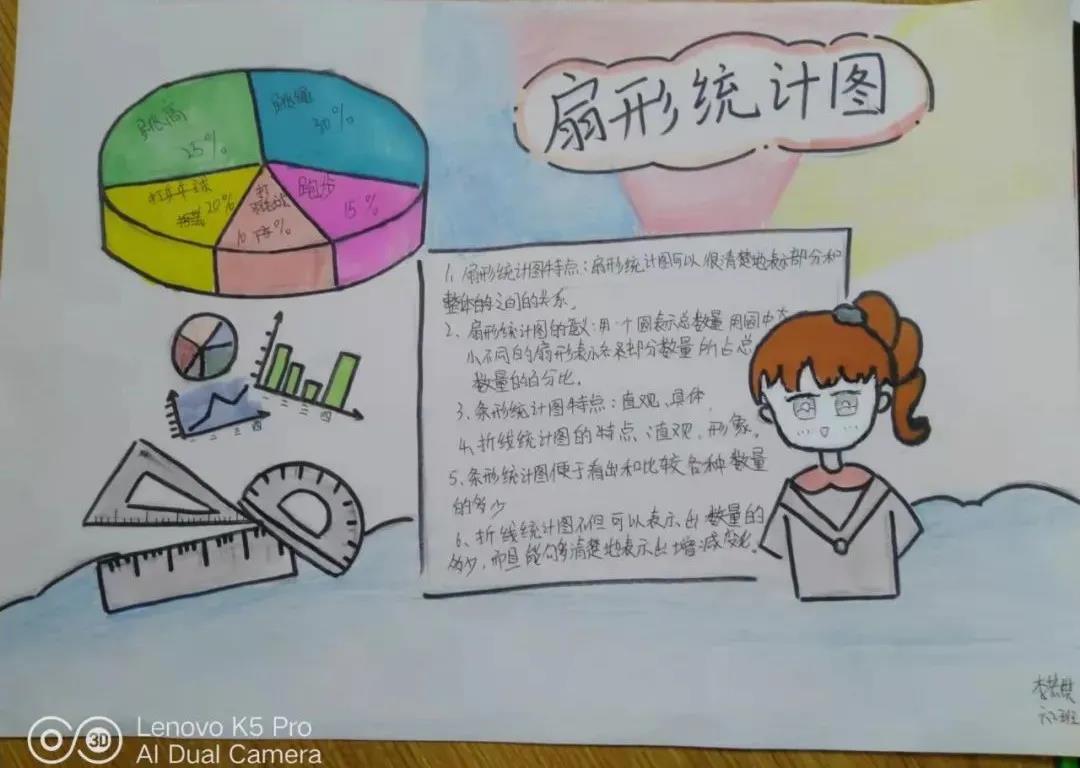 扇形统计图
跳高
25%
跳绳
30%
打乒乓球
20%
跑步
15%
打
10%
1、扇形统计图特点：扇形统计图可以很清楚地表示部分和
整体的之间的关系。
2、扇形统计图的意义：用一个圆表示总数量用圆中大
小不同的扇形表示各部分数量所占总
数量的百分比。
3、条形统计图特点：直观、具体，
4、折线统计图的特点：直观、形象。
5、条形统计图便于看出和比较各种数量
的多少
6、折线统计图不但可以表示出数量的
多少，而且能够清楚地表示出增减变化。
一 二 三 四
一 二 三 四
李
六班
3D
Lenovo K5 Pro
AI Dual Camera